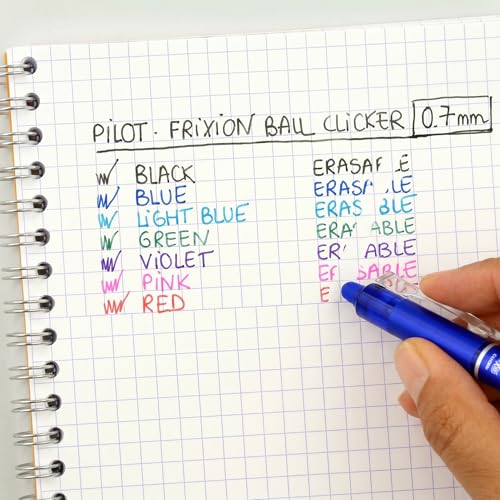 PILOT · FRIXION BALL CLICKER 0.7mm
BLACK ERASA LE
BLUE ERASA LE
LIGHT BLUE ERAS BLE
GREEN ERA ABLE
VIOLET ER ABLE
PINK ER SABLE
RED E